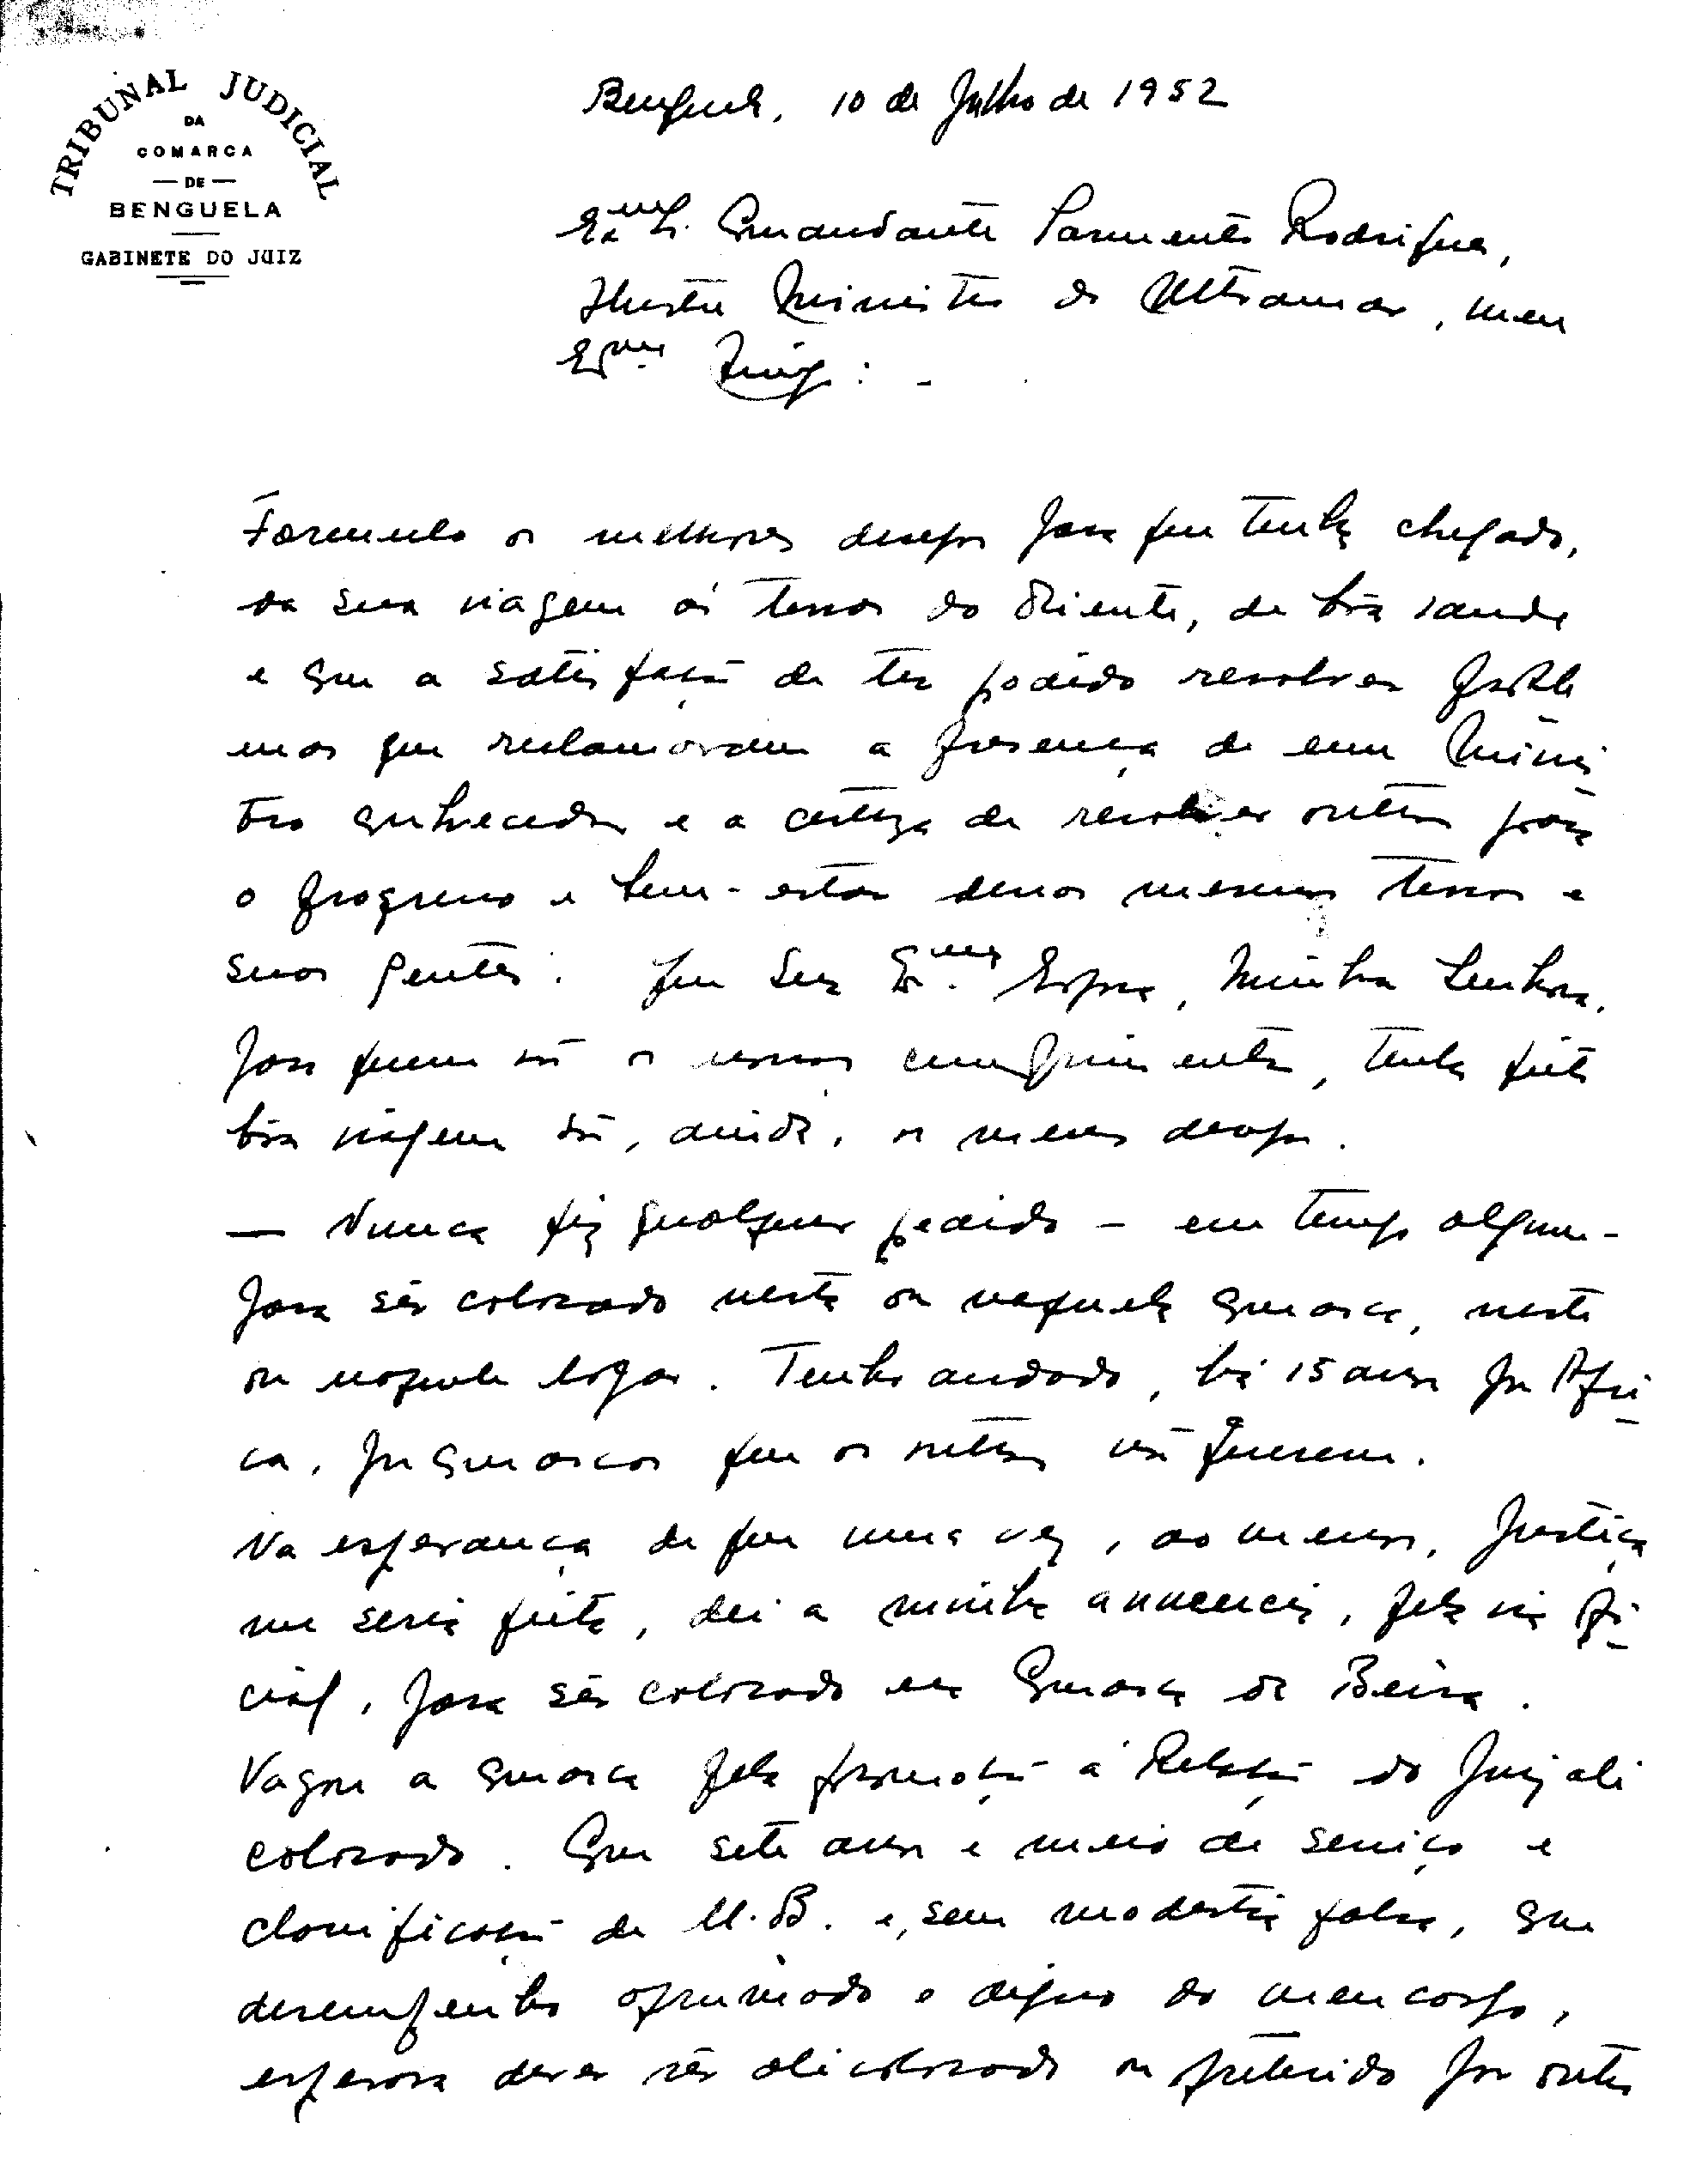 TRIBUNAL JUDICIAL
DA
COMARCA
— DE —
BENGUELA
GABINETE DO JUIZ
Benguela, 10 de Julho de 1952
Exmo Sr. Comandante Sarmento Rodrigues,
Ilustre Ministro do Ultramar, meu
Exmo Amigo: -
Formulo os melhores desejos para que tenha chegado,
da sua viagem ás terras do Oriente, de bôa saude
e com a satisfação de ter podido resolver proble
mas que reclamavam a presença de um Minis
tro conhecedor e a certeza de resolver outros para
o progresso e bem-estar dessas mesmas terras e
suas gentes. Que Sua Exma Esposa, Minha Senhora,
para quem vão os nossos cumprimentos, tenha feito
bôa viagem são, ainda, os meus desejos.
— Nunca fiz qualquer pedido - em tempo algum -
para sêr colocado nesta ou naquela comarca, neste
ou naquele logar. Tenho andado, há 15 anos por Afri
ca, por comarcas que os outros não querem.
Na esperança de que uma vez, ao menos, justiça
me seria feita, dei a minha annuencia, pela via ofi
cial, para sêr colocado na Comarca da Beira.
Vagou a comarca pela promoção á Relação do Juiz ali
colocado. Com sete anos e meio de serviço e
classificação de M.B. e, sem modestia falsa, com
desempenho aprumado e digno do meu cargo,
esperava dever sêr ali colocado ou preterido por outro